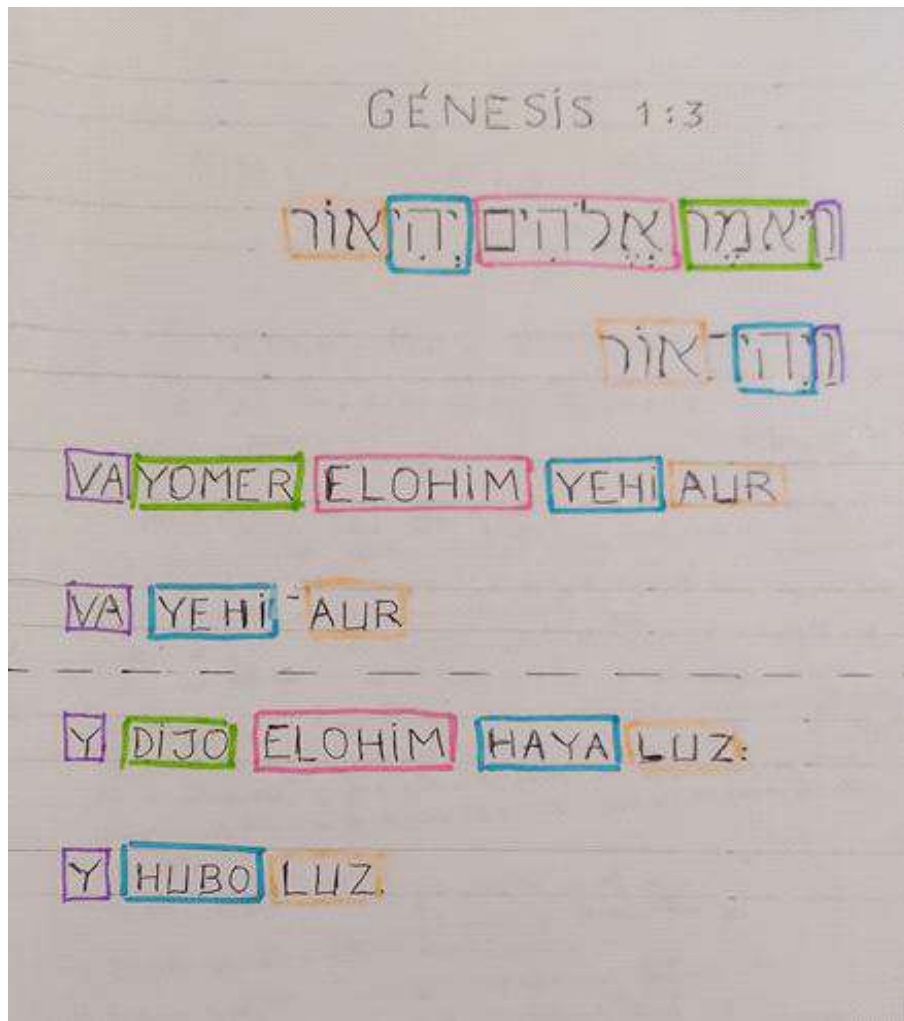 GÉNESIS 1:3
וַיֹּאמֶר אֱלֹהִים יְהִי אוֹר
וַיְהִי־אוֹר
VA YOMER ELOHIM YEHI AUR
VA YEHI-AUR
Y DIJO ELOHIM HAYA LUZ:
Y HUBO LUZ.